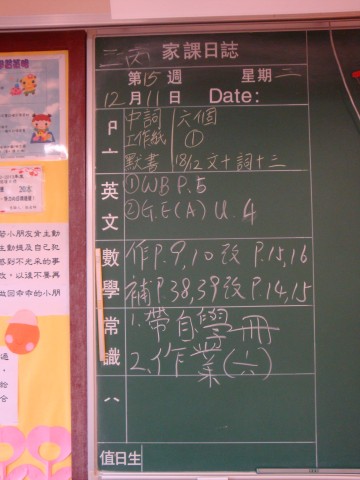 二六 家課日誌
第15週 星期二
12月11日 Date:
中詞 六個
工作紙 ①
默書 18/12 文十 詞十三
英文 ①WB P.5
②G.E(A) U.4
數學 作P.9,10 改 P.15,16
補P.38,39 改 P.14,15
常識 1.帶自學冊
2.作業(六)
值日生
小朋友會主動
主動提及自己犯
感到不光采的事
改,以後不要再
做回乖乖的小朋